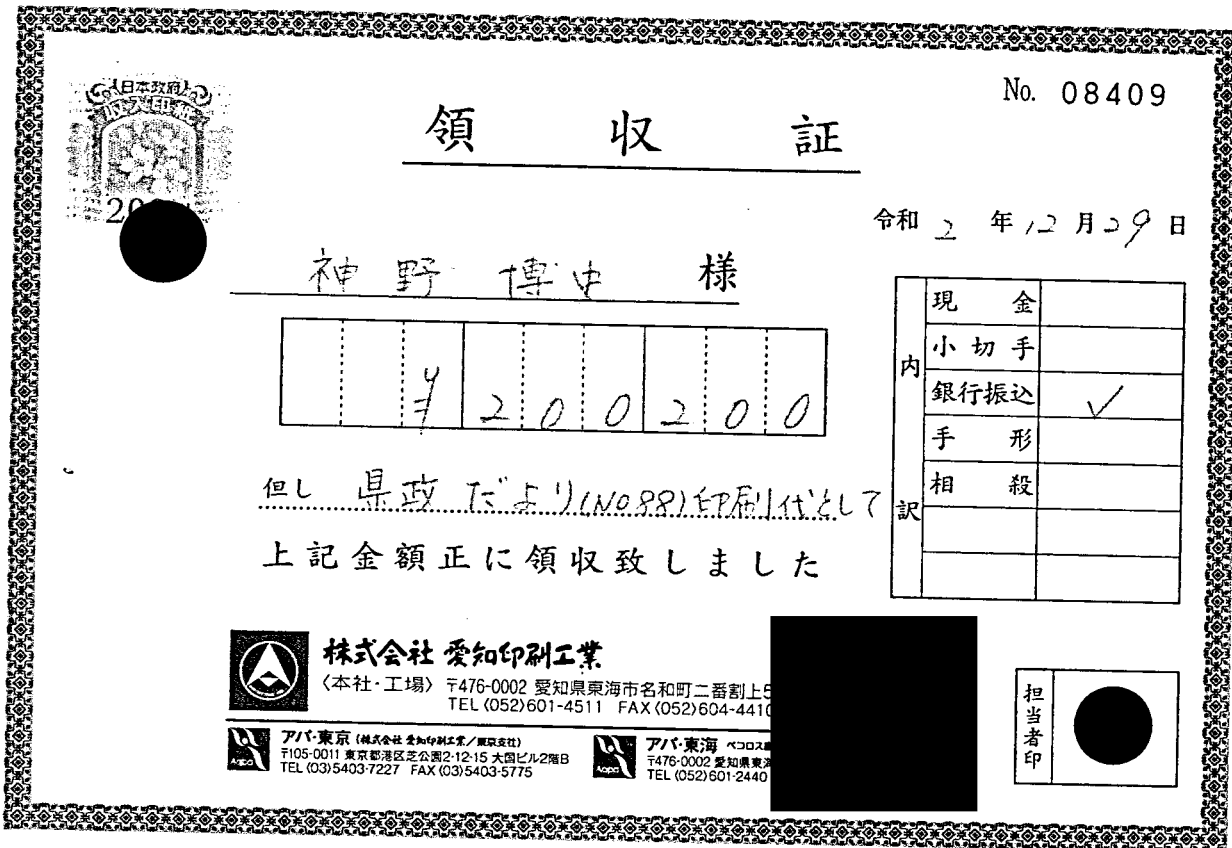 No. 08409
日本政府
収入印紙
20
領収証
令和 2 年 12 月 29 日
神野 博史 様
¥200200
但し 県政だより(No88)印刷代として
上記金額正に領収致しました
内訳
現金
小切手
銀行振込 ✓
手形
相殺
株式会社 愛知印刷工業
〈本社・工場〉 〒476-0002 愛知県東海市名和町二番割上5
TEL〈052〉601-4511 FAX〈052〉604-4410
アパ・東京 (株式会社 愛知印刷工業/東京支社)
〒105-0011 東京都港区芝公園2-12-15 大国ビル2階B
TEL〈03〉5403-7227 FAX〈03〉5403-5775
アパ・東海 ペコロス
〒476-0002 愛知県東海
TEL〈052〉601-2440
担当者印